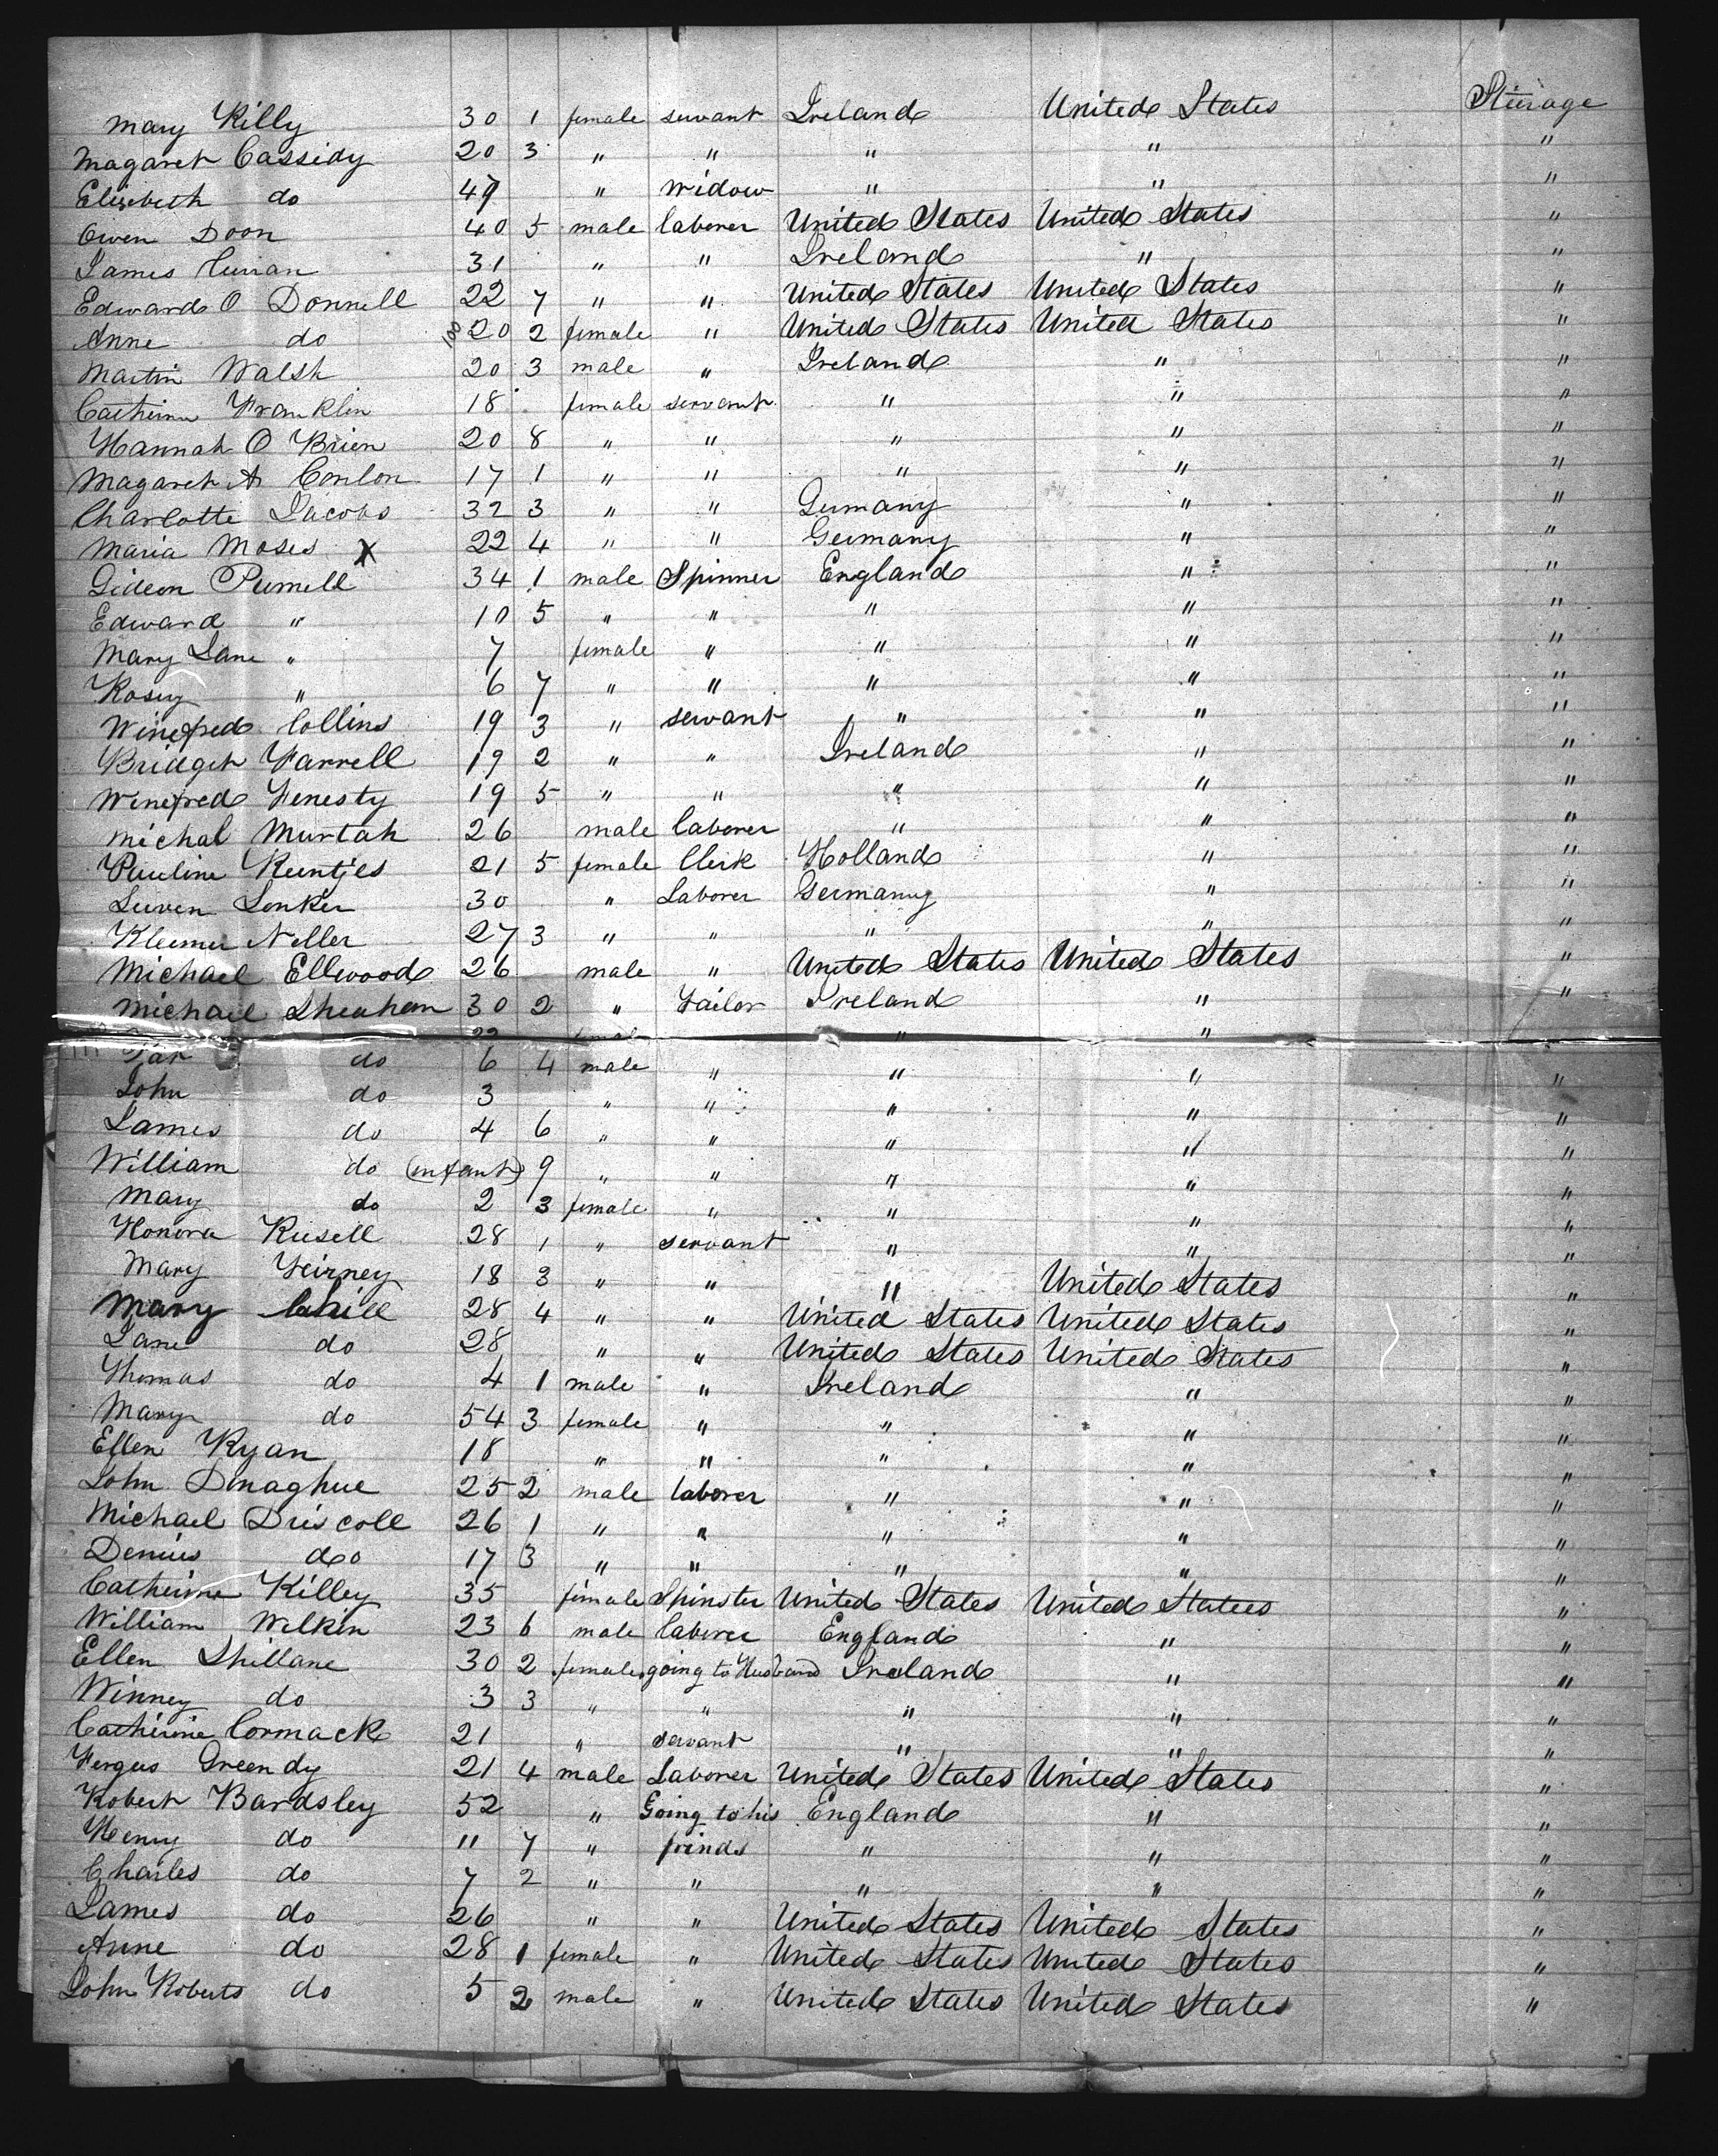 Mary Killy 30 1 female servant Ireland United States Sturage
Magaret Cassidy 20 3 " " " " "
Elisebeth do 47 " Widow " " "
Owen Doon 40 5 male laborer United States United States "
James Curran 31 " " Ireland " "
Edward O Donnell 22 7 " " United States United States "
Anne do 20 2 female " United States United States "
Martin Walsh 20 3 male " Ireland " "
Catherine Franklin 18 female servant " " "
Hannah O Brien 20 8 " " " " "
Magaret A Conlon 17 1 " " " " "
Charlotte Jacobs 32 3 " " Germany " "
Maria Moses X 22 4 " " Germany " "
Gideon Purnell 34 1 male Spinner England " "
Edward " 10 5 " " " " "
Mary Jane " 7 female " " " "
Rosey " 6 7 " " " " "
Winefred Collins 19 3 " servant " " "
Bridget Farrell 19 2 " " Ireland " "
Winefred Fenesty 19 5 " " " " "
Michal Murtah 26 male laborer " " "
Pauline Kuntjes 21 5 female Clerk Holland " "
Lenker 30 " Laborer Germany " "
Neller 27 3 " " " " "
Michael Ellwood 26 male " United States United States "
Michael Sheahem 30 2 " Tailor Ireland " "
22 female " "
Pat do 6 4 male " " " "
John do 3 " " " " "
James do 4 6 " " " " "
William do (infant) 9 " " " " "
Mary do 2 3 female " " " "
Honora Rusell 28 1 " servant " " "
Mary Feirney 18 3 " " " United States "
Mary Cahill 28 4 " " United States United States "
Jane do 28 " " United States United States "
Thomas do 4 1 male " Ireland " "
Mary do 54 3 female " " " "
Ellen Ryan 18 " " " " "
John Donaghue 25 2 male laborer " " "
Michael Driscoll 26 1 " " " " "
Dennis do 17 3 " " " " "
Catherine Killey 35 female Spinster United States United States "
William Wilken 23 6 male laborer England " "
Ellen Shillane 30 2 female going to Husband Ireland " "
Winney do 3 3 " " " " "
Catherine Cormack 21 " servant " " "
Fergus Greendy 21 4 male Laborer United States United States "
Robert Bardsley 52 " Going to his England " "
Henry do 11 7 " frinds " " "
Charles do 7 2 " " " " "
James do 26 " " United States United States "
Anne do 28 1 female " United States United States "
John Roberts do 5 2 male " United States United States "